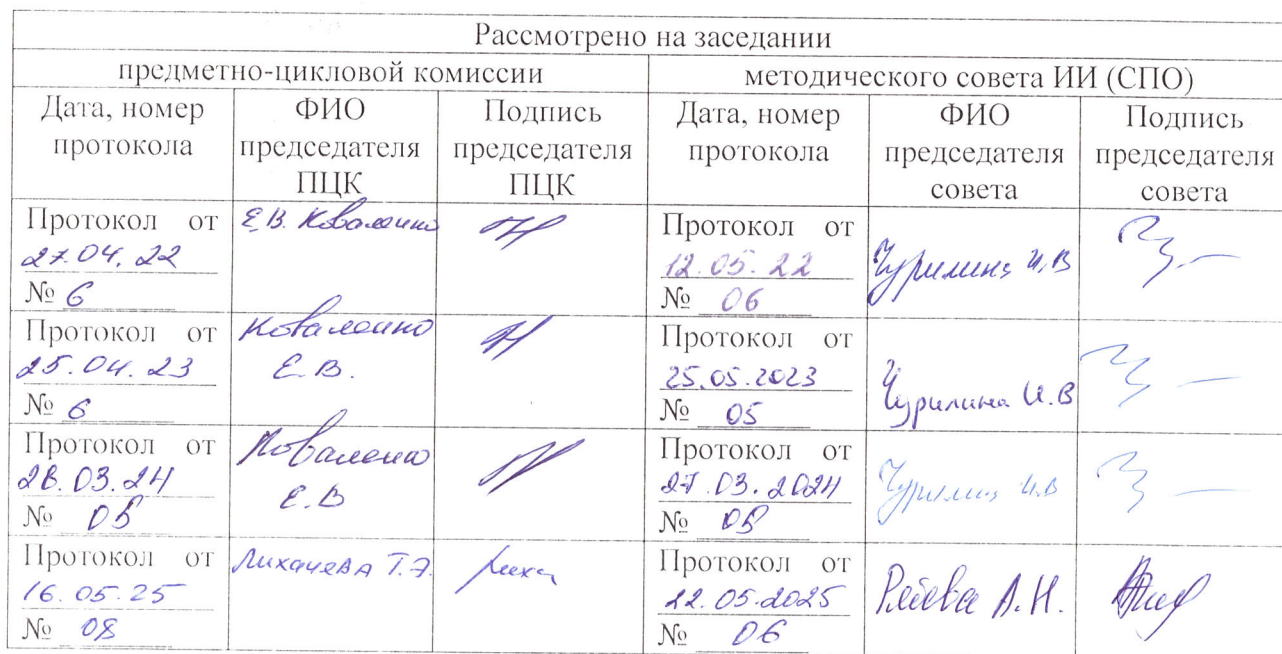 Рассмотрено на заседании
предметно-цикловой комиссии
методического совета ИИ (СПО)
Дата, номер протокола
ФИО председателя ПЦК
Подпись председателя ПЦК
Дата, номер протокола
ФИО председателя совета
Подпись председателя совета
Протокол от
27.04.22
№ 6
Е.В. Коваленко
Протокол от
12.05.22
№ 06
Чурилина И.В
Протокол от
25.04.23
№ 6
Коваленко
Е.В.
Протокол от
25.05.2023
№ 05
Чурилина И.В
Протокол от
28.03.24
№
Коваленко
Е.В
Протокол от
27.03.2024
№
Чурилина И.В
Протокол от
16.05.25
№ 08
Лихачева Т.Э.
Протокол от
22.05.2025
№ 06
А.Н.